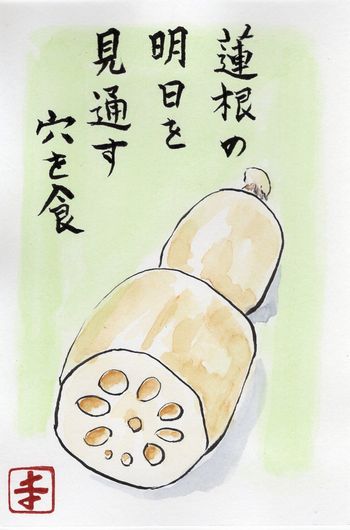 蓮根の
明日を
見通す
穴を食